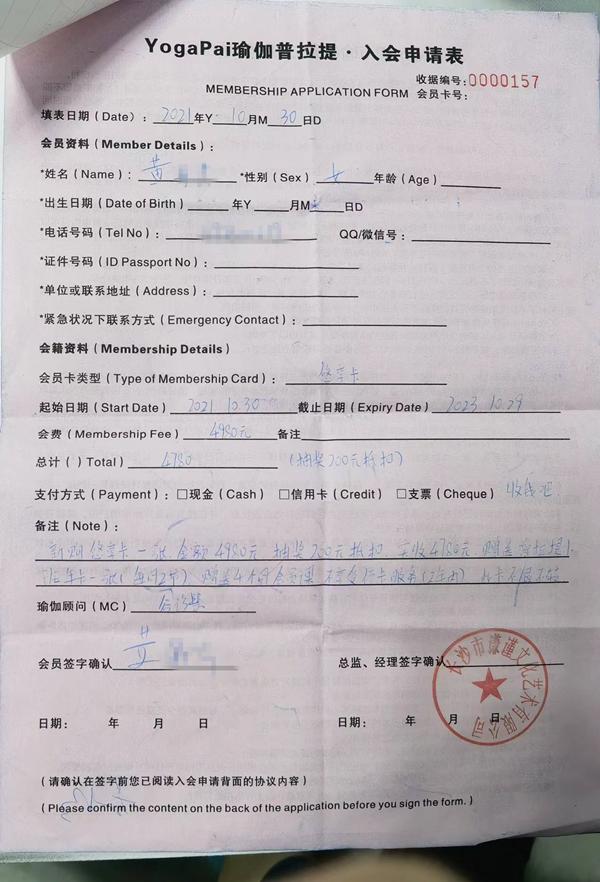 YogaPai瑜伽普拉提·入会申请表
MEMBERSHIP APPLICATION FORM
收据编号:0000157
会员卡号:
填表日期(Date): 2021年Y 10月M 30日D
会员资料(Member Details):
*姓名(Name): 黄 *性别(Sex) 女 年龄(Age)
*出生日期(Date of Birth) 年Y 月M 日D
*电话号码(Tel No): QQ/微信号:
*证件号码(ID Passport No):
*单位或联系地址(Address):
*紧急状况下联系方式(Emergency Contact):
会籍资料(Membership Details)
会员卡类型(Type of Membership Card): 悠享卡
起始日期(Start Date) 2021 10.30 截止日期(Expiry Date) 2023 10.29
会费(Membership Fee) 4980元 备注
总计()Total) 4780 (抽奖200元抵扣)
支付方式(Payment): □现金(Cash) □信用卡(Credit) □支票(Cheque) 收钱吧
备注(Note):
新购悠享卡一张 金额4980元 抽奖200元抵扣 实收4780元 赠送普拉提
年卡一张(每月2节) 赠送4个月会员课 不享受停卡服务(2年内) 此卡不退不转
瑜伽顾问(MC)
会员签字确认 黄
总监、经理签字确认
日期: 年 月 日 日期: 年 月 日
长沙市 瑾文化艺术有限公司
(请确认在签字前您已阅读入会申请背面的协议内容)
(Please confirm the content on the back of the application before you sign the form.)